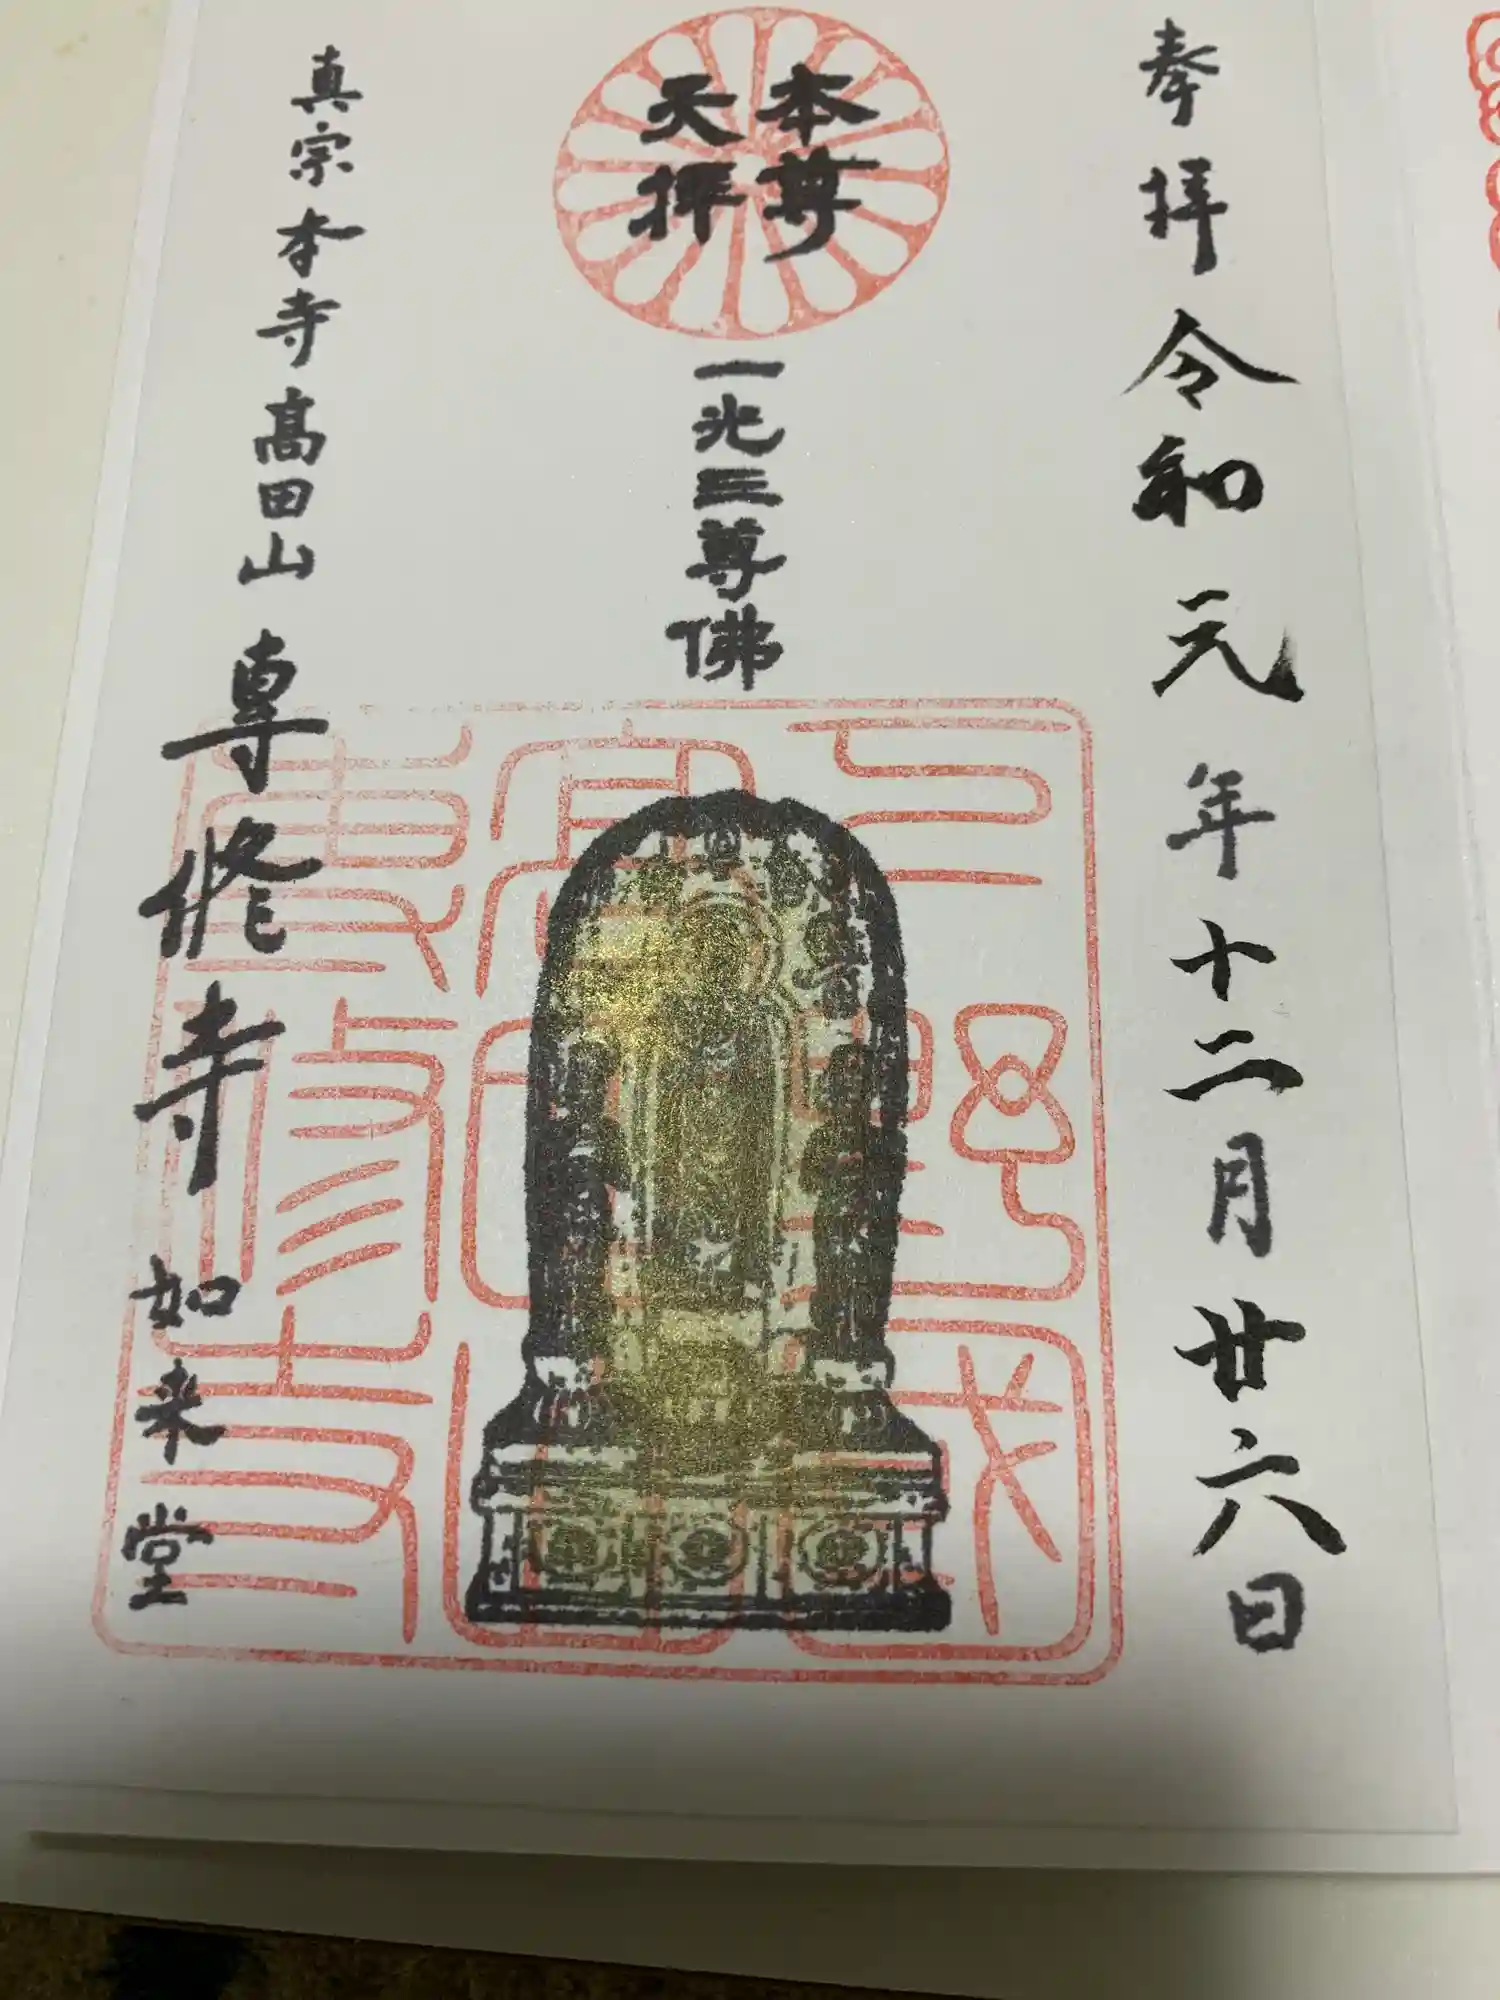 奉拝 令和元年十二月廿六日
本尊
天拝
一光三尊佛
真宗本寺高田山 専修寺 如来堂